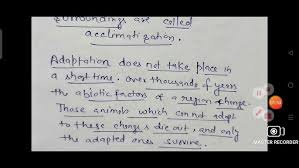 surroundings are called
acclimatization.
Adaptation does not take place in
a short time. Over thousands of years
the abiotic factors of a region change.
Those animals which can not adapt
to these changes die out, and only
the adapted ones survive.
MASTER RECORDER